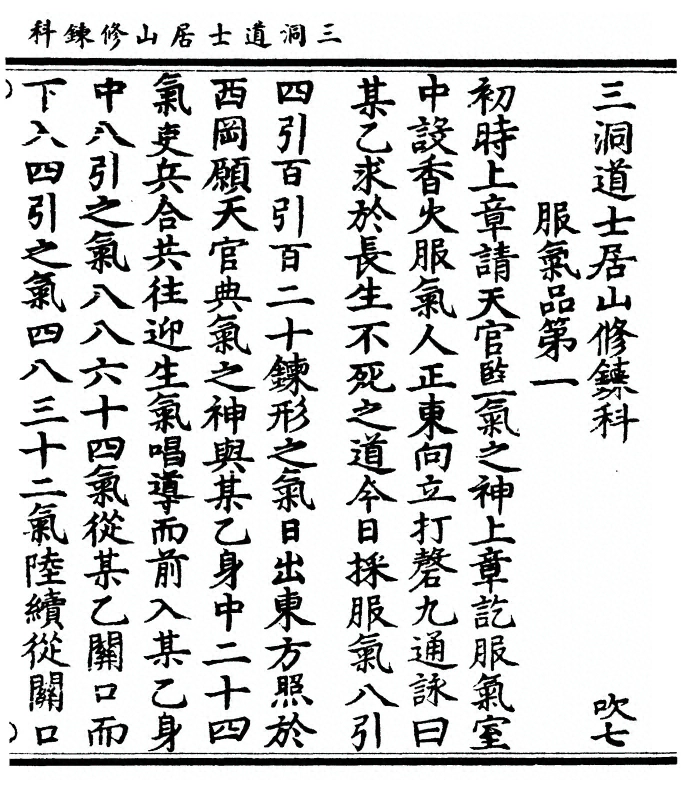 三洞道士居山修鍊科
三洞道士居山修鍊科 吹七
服氣品第一
初時上章請天官監氣之神上章訖服氣室
中設香火服氣人正東向立打磬九通詠曰
某乙求於長生不死之道今日採服氣八引
四引百引百二十鍊形之氣日出東方照於
西岡願天官典氣之神與某乙身中二十四
氣吏兵合共往迎生氣唱導而前入某乙身
中八引之氣八八六十四氣從某乙關口而
下入四引之氣四八三十二氣陸續從關口